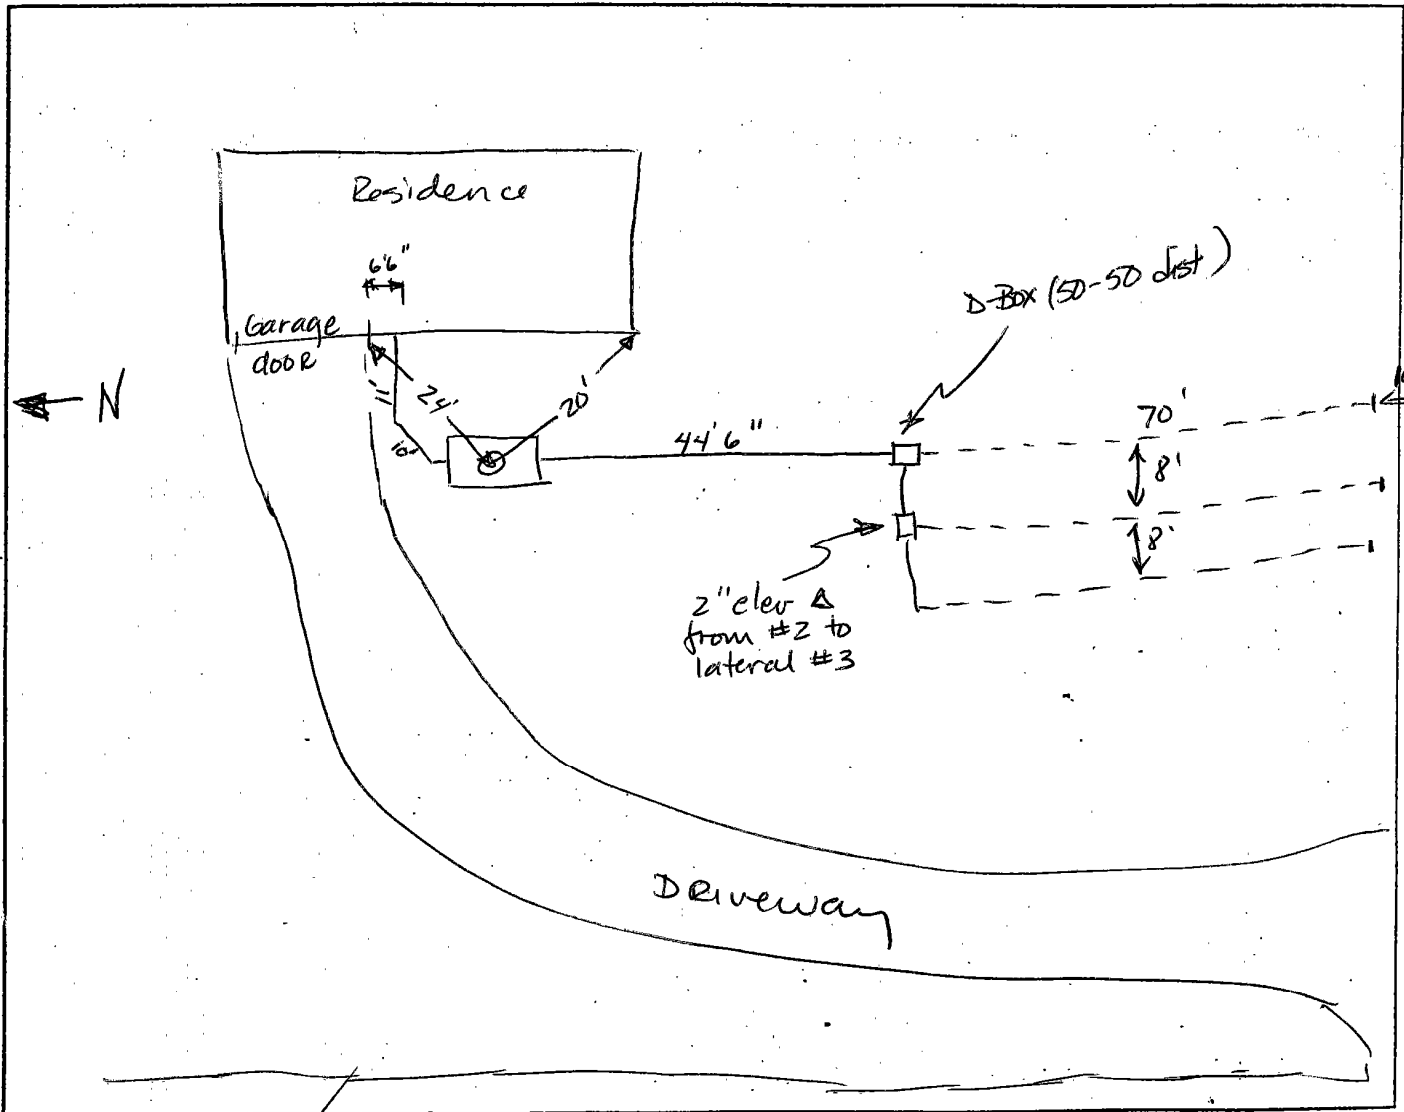 Residence
6'6"
Garage
door
N
11'
24'
20'
10'
44'6"
D-Box (50-50 dist)
70'
8'
8'
2" elev Δ
from #2 to
lateral #3
Driveway